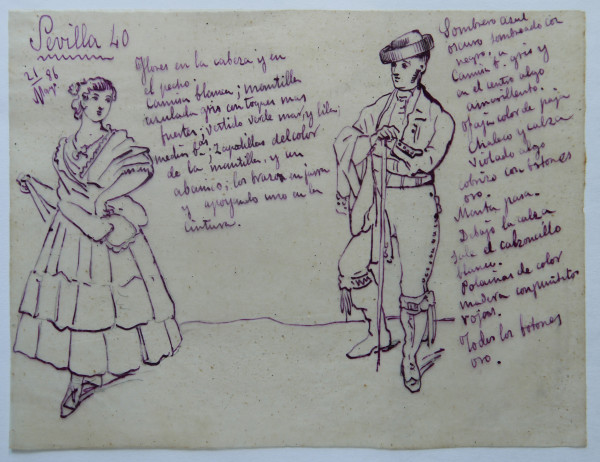 Sevilla 40
21 86
Flores en la cabeza y en
el pecho.
Camisa blanca; mantilla
azulada gris con toques mas
fuertes; vestido verde mar, y lila;
medias bas; zapatillas del color
de la mantilla, y un
abanico; los brazos en jarra
y apoyando uno en la
cintura.
Sombrero azul
oscuro sombreado con
negro, a
Camisa b. gris y
en el centro algo
amarillento.
Faja color de paja
Chaleco y calza
violado algo
cobrizo con botones
oro.
Manta pasa.
Debajo la calza
sale el calzoncillo
blanco.
Polainas de color
madera con puntitos
rojos.
Todos los botones
oro.